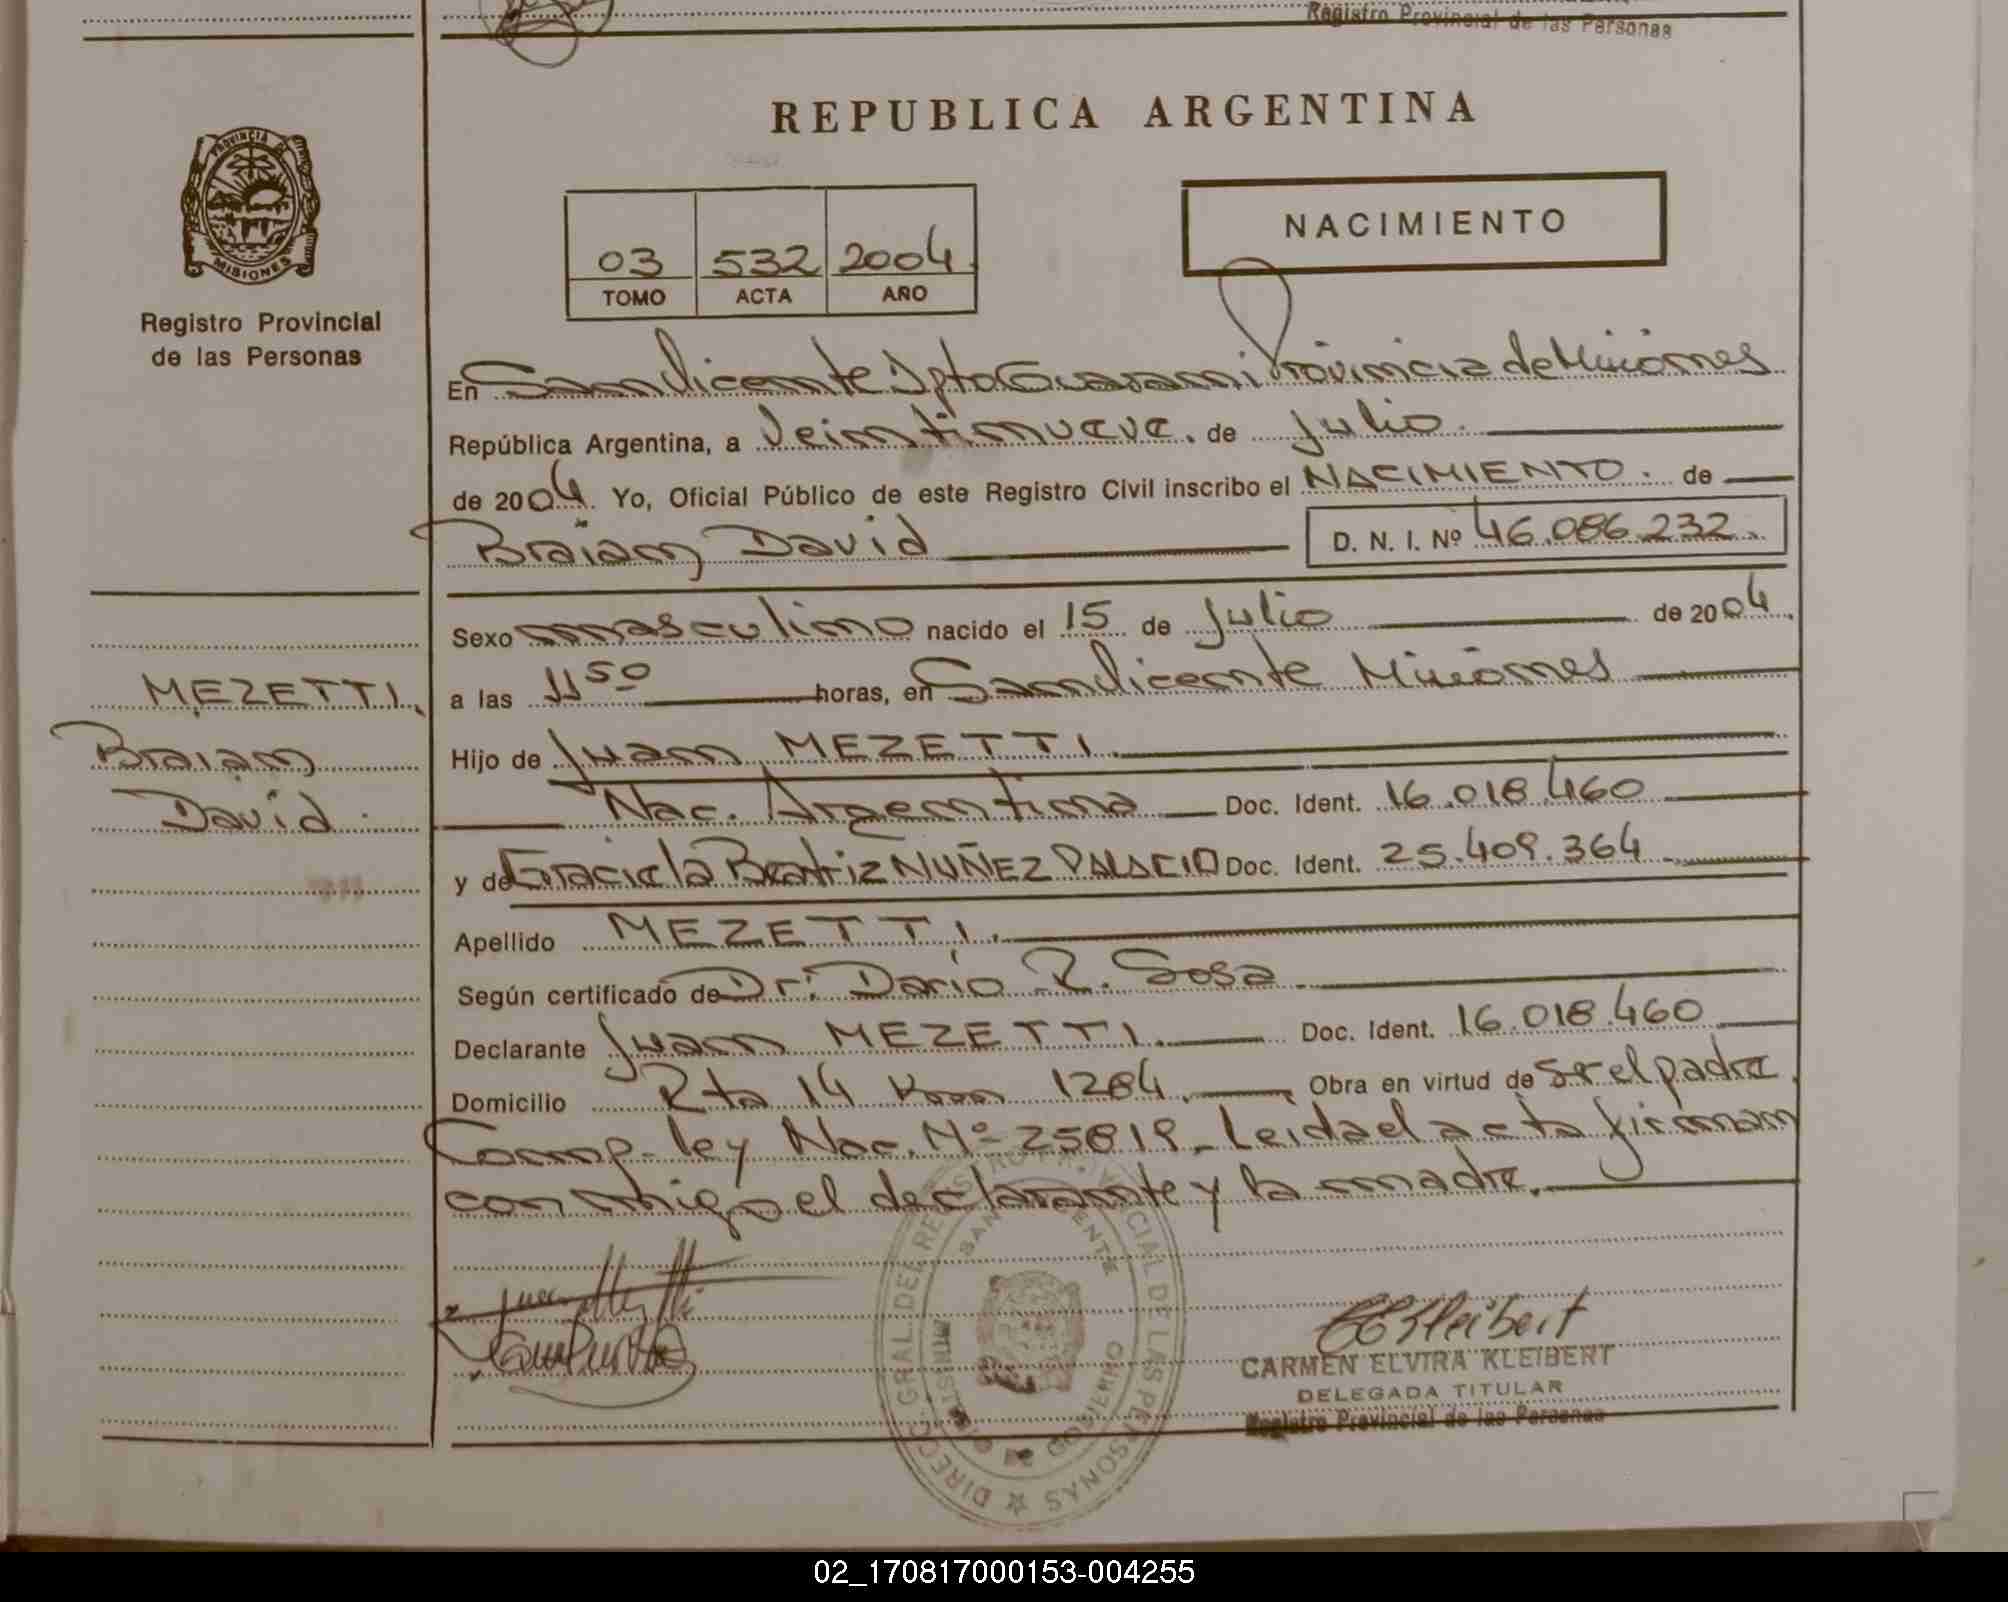 Registro Provincial de las Personas
PROVINCIA DE
MISIONES
Registro Provincial
de las Personas
REPUBLICA ARGENTINA
03 532 2004
TOMO ACTA AÑO
NACIMIENTO
En San Vicente Dpto Guarani Provincia de Misiones
República Argentina, a Veintinueve. de Julio.
de 2004. Yo, Oficial Público de este Registro Civil inscribo el NACIMIENTO. de
Braian David D. N. I. Nº 46.086.232.
Sexo masculino nacido el 15 de Julio de 2004.
a las 11 50 horas, en San Vicente Misiones
MEZETTI,
Braian
David.
Hijo de Juan MEZETTI.
Nac. Argentina Doc. Ident. 16.018.460
y de Graciela Beatriz NUÑEZ PALACIO Doc. Ident. 25.409.364
Apellido MEZETTI.
Según certificado de Dr: Dario R. Sosa
Declarante Juan MEZETTI. Doc. Ident. 16.018.460
Domicilio Rta 14 Km 1284. Obra en virtud de Ser el padre.
Comp. ley Nac. Nº 25819. Leida el acta firman
conmigo el declarante y la madre.
DIRECC. GRAL. DEL REGISTRO PROVINCIAL DE LAS PERSONAS
SAN VICENTE
MINISTERIO DE GOBIERNO
CARMEN ELVIRA KLEIBERT
DELEGADA TITULAR
Registro Provincial de las Personas
02_170817000153-004255